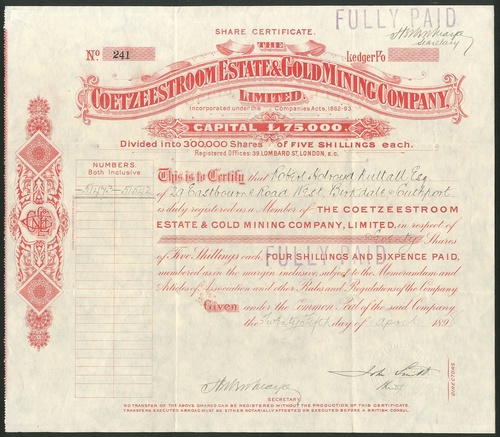 FULLY PAID
SHARE CERTIFICATE.
Secretary
No 241
Ledger Fo
THE
COETZEESTROOM ESTATE & GOLD MINING COMPANY,
LIMITED.
Incorporated under the Companies Acts, 1862-93.
CAPITAL £75,000.
Divided into 300,000 Shares of FIVE SHILLINGS each.
Registered Offices: 39 LOMBARD ST, LONDON, E.C.
NUMBERS.
Both Inclusive
This is to Certify that Robert Holroyd Nuttall Esq
of 29 Eastbourne Road West Birkdale Southport
is duly registered as a Member of THE COETZEESTROOM
ESTATE & GOLD MINING COMPANY, LIMITED, in respect of
Shares
of Five Shillings each, FOUR SHILLINGS AND SIXPENCE PAID,
FULLY PAID
numbered as in the margin inclusive, subject to the Memorandum and
Articles of Association and other Rules and Regulations of the Company
Given under the Common Seal of the said Company
the day of April 189
John Smith
DIRECTORS.
SECRETARY
NO TRANSFER OF THE ABOVE SHARES CAN BE REGISTERED WITHOUT THE PRODUCTION OF THIS CERTIFICATE.
TRANSFERS EXECUTED ABROAD MUST BE EITHER NOTARIALLY ATTESTED OR EXECUTED BEFORE A BRITISH CONSUL.